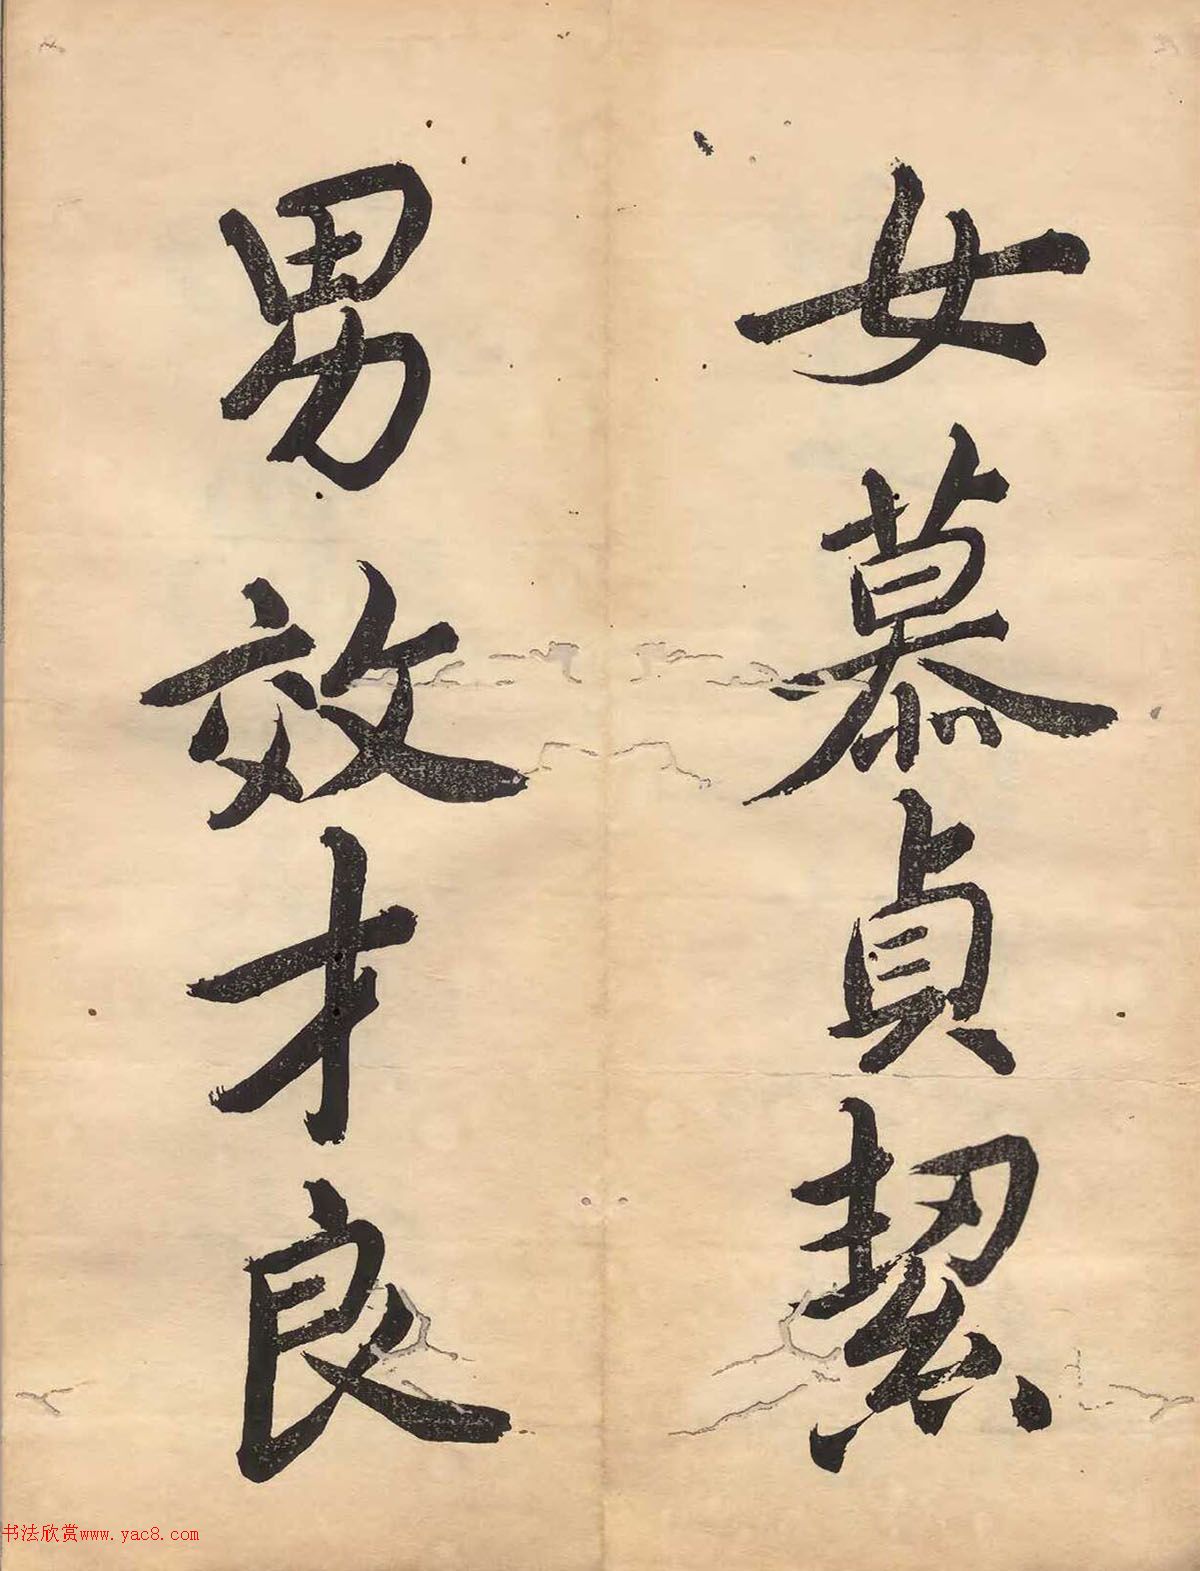 女慕貞絜
男效才良
书法欣赏www.yac8.com